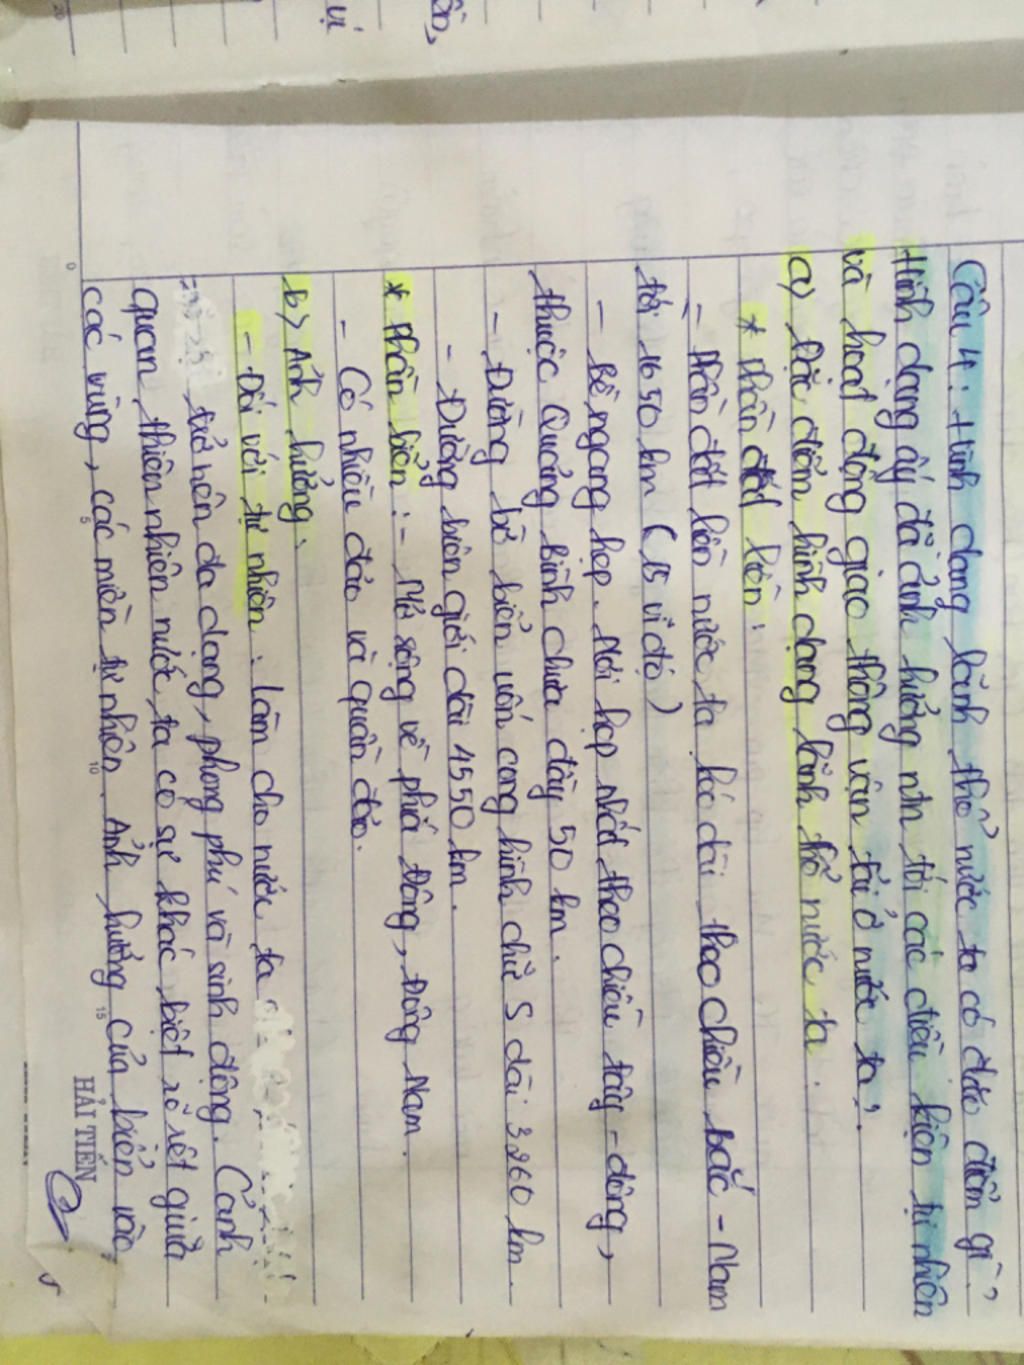 Câu 4: Hình dạng lãnh thổ nước ta có đặc điểm gì?
Hình dạng ấy đã ảnh hưởng ntn tới các điều kiện tự nhiên
và hoạt động giao thông vận tải ở nước ta?
a) Đặc điểm hình dạng lãnh thổ nước ta:
* Phần đất liền:
- Phần đất liền nước ta kéo dài theo chiều bắc - Nam
tới 1650 km (15 vĩ độ)
- Bề ngang hẹp. Nơi hẹp nhất theo chiều tây - đông,
thuộc Quảng Bình chưa đầy 50 km.
- Đường bờ biển uốn cong hình chữ S dài 3260 km.
- Đường biên giới dài 4550 km.
* Phần biển: - Mở rộng về phía Đông, Đông Nam.
- Có nhiều đảo và quần đảo.
b) Ảnh hưởng.
- Đối với tự nhiên: Làm cho nước ta
trở nên đa dạng, phong phú và sinh động. Cảnh
quan thiên nhiên nước ta có sự khác biệt rõ rệt giữa
các vùng, các miền tự nhiên. Ảnh hưởng của biển vào
0 5 10 15
HẢI TIẾN
vị